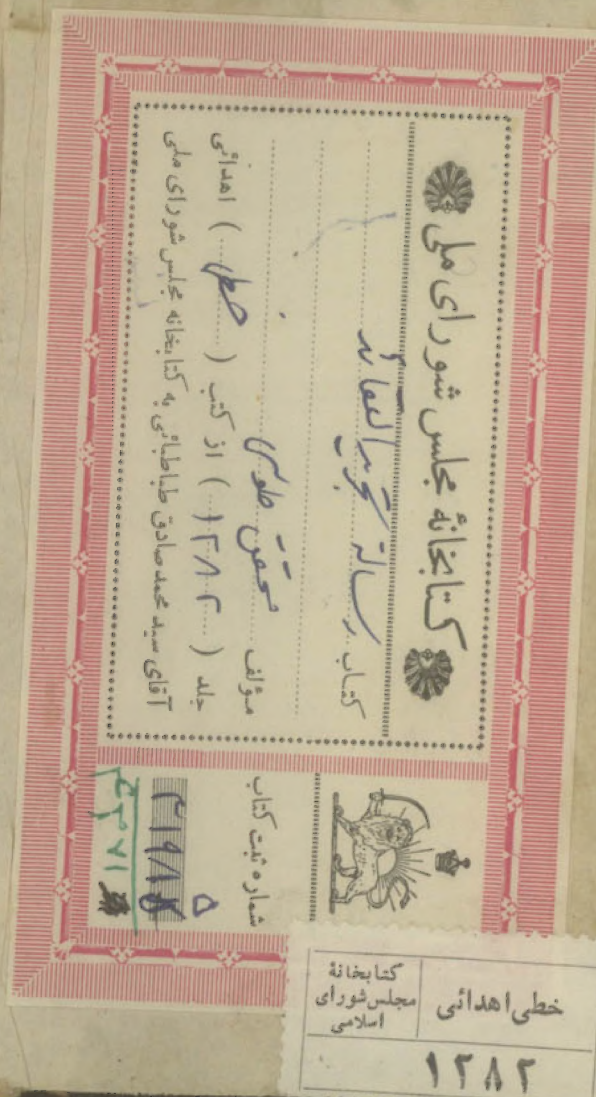 کتابخانهٔ مجلس شورای ملی
کتاب رسالة تجرید العقائد
مؤلف محقق طوسی
جلد (۱۲۸۲) ( ) از کتب (خطی) اهدائی
آقای سید محمد صادق طباطبائی به کتابخانه مجلس شورای ملی
شماره ثبت کتاب
خطی اهدائی
کتابخانهٔ
مجلس شورای
اسلامی
۱۲۸۲